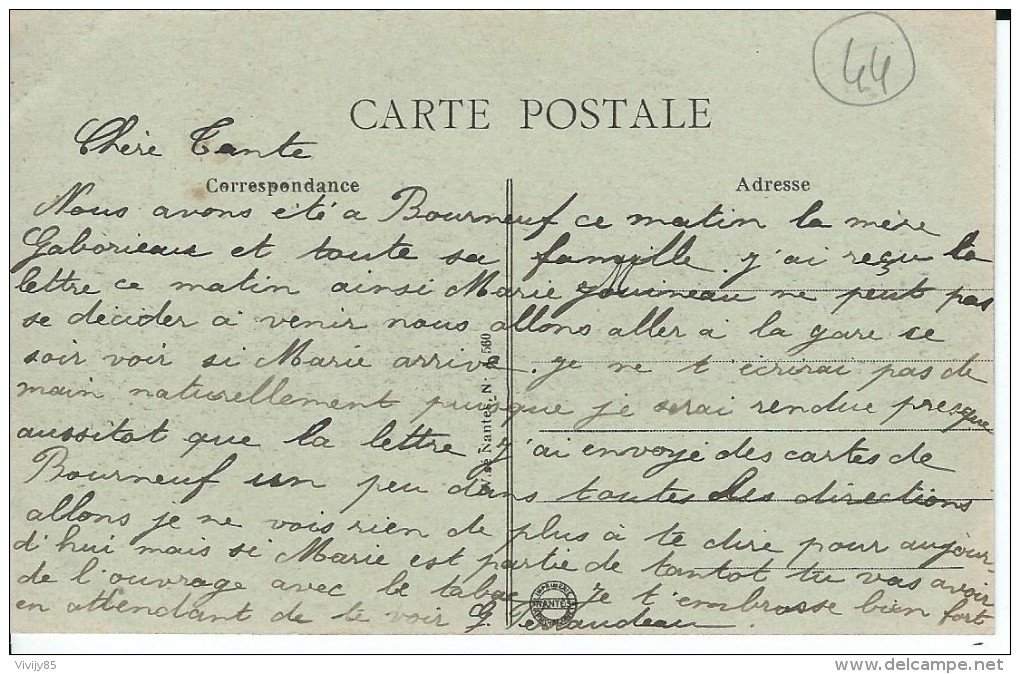 44
CARTE POSTALE
Chère Tante
Correspondance
Adresse
Nous avons été a Bourneuf ce matin la mère
Gaborieau et toute sa famille. j'ai reçu la
lettre ce matin ainsi Marie Jouineau ne peut pas
se décider à venir nous allons aller à la gare ce
soir voir si Marie arrive. je ne t'écrirai pas de
main naturellement puisque je serai rendue presque
aussitot que la lettre. j'ai envoyé des cartes de
Bourneuf un peu dans toutes les directions
allons je ne vois rien de plus à te dire pour aujour
d'hui mais si Marie est partie de tantot tu vas avoir
de l'ouvrage avec le tabac je t'embrasse bien fort
en attendant de te voir G.
Nantes N. 560
IMPRIMERIE
NANTES
Vivijy85
www.delcampe.net